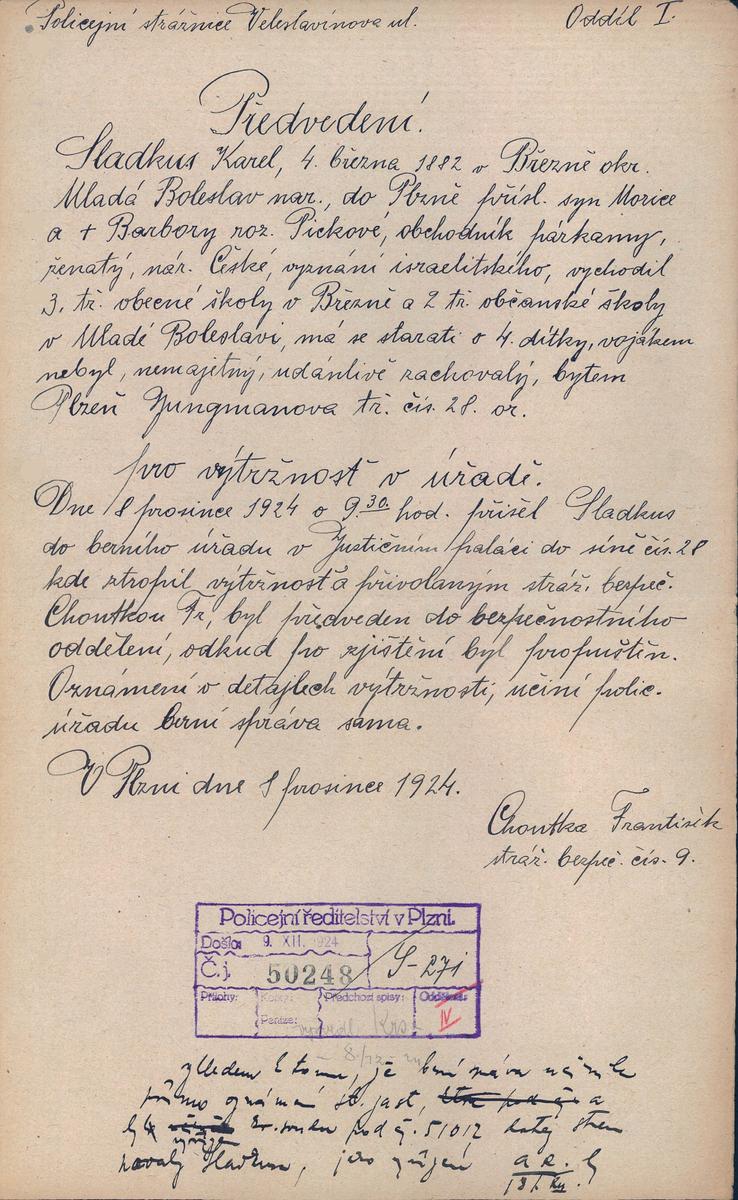 Policejní strážnice Veleslavínova ul. Oddíl I.
Předvedení.
Sladkus Karel, 4. března 1882 v Březně okr.
Mladá Boleslav nar., do Plzně přísl. syn Morice
a + Barbory roz. Pickové, obchodník párkamy,
ženatý, nár. České, vyznání israelitského, vychodil
3. tř. obecné školy v Březně a 2 tř. občanské školy
v Mladé Boleslavi, má se starati o 4. dítky, vojákem
nebyl, nemajetný, udánlivě zachovalý, bytem
Plzeň Jungmanova tř. čís. 28. or.
pro výtržnosť v úřadě.
Dne 8 prosince 1924 o 9.30. hod. přišel Sladkus
do berního úřadu v Justičním paláci do síně čís. 28
kde ztropil výtržnosť a přivolaným stráž. bezpeč.
Choutkou Fr, byl předveden do bezpečnostního
oddělení, odkud po zjištění byl propuštěn.
Oznámení o detajlech výtržnosti, učiní polic.
úřadu berní správa sama.
V Plzni dne 8 prosince 1924.
Choutka František
stráž. bezpeč. čís. 9.
Policejní ředitelství v Plzni.
Došlo: 9. XII. 1924
Č.j. 50248 S-271
Přílohy: Kolky: Předchozí spisy: Oddělení:
Peníze: IV
vzhledem k tomu, že berní správa učinila
přímo oznámení st. zast, a
pod č. 51012
Sladkus, jeho